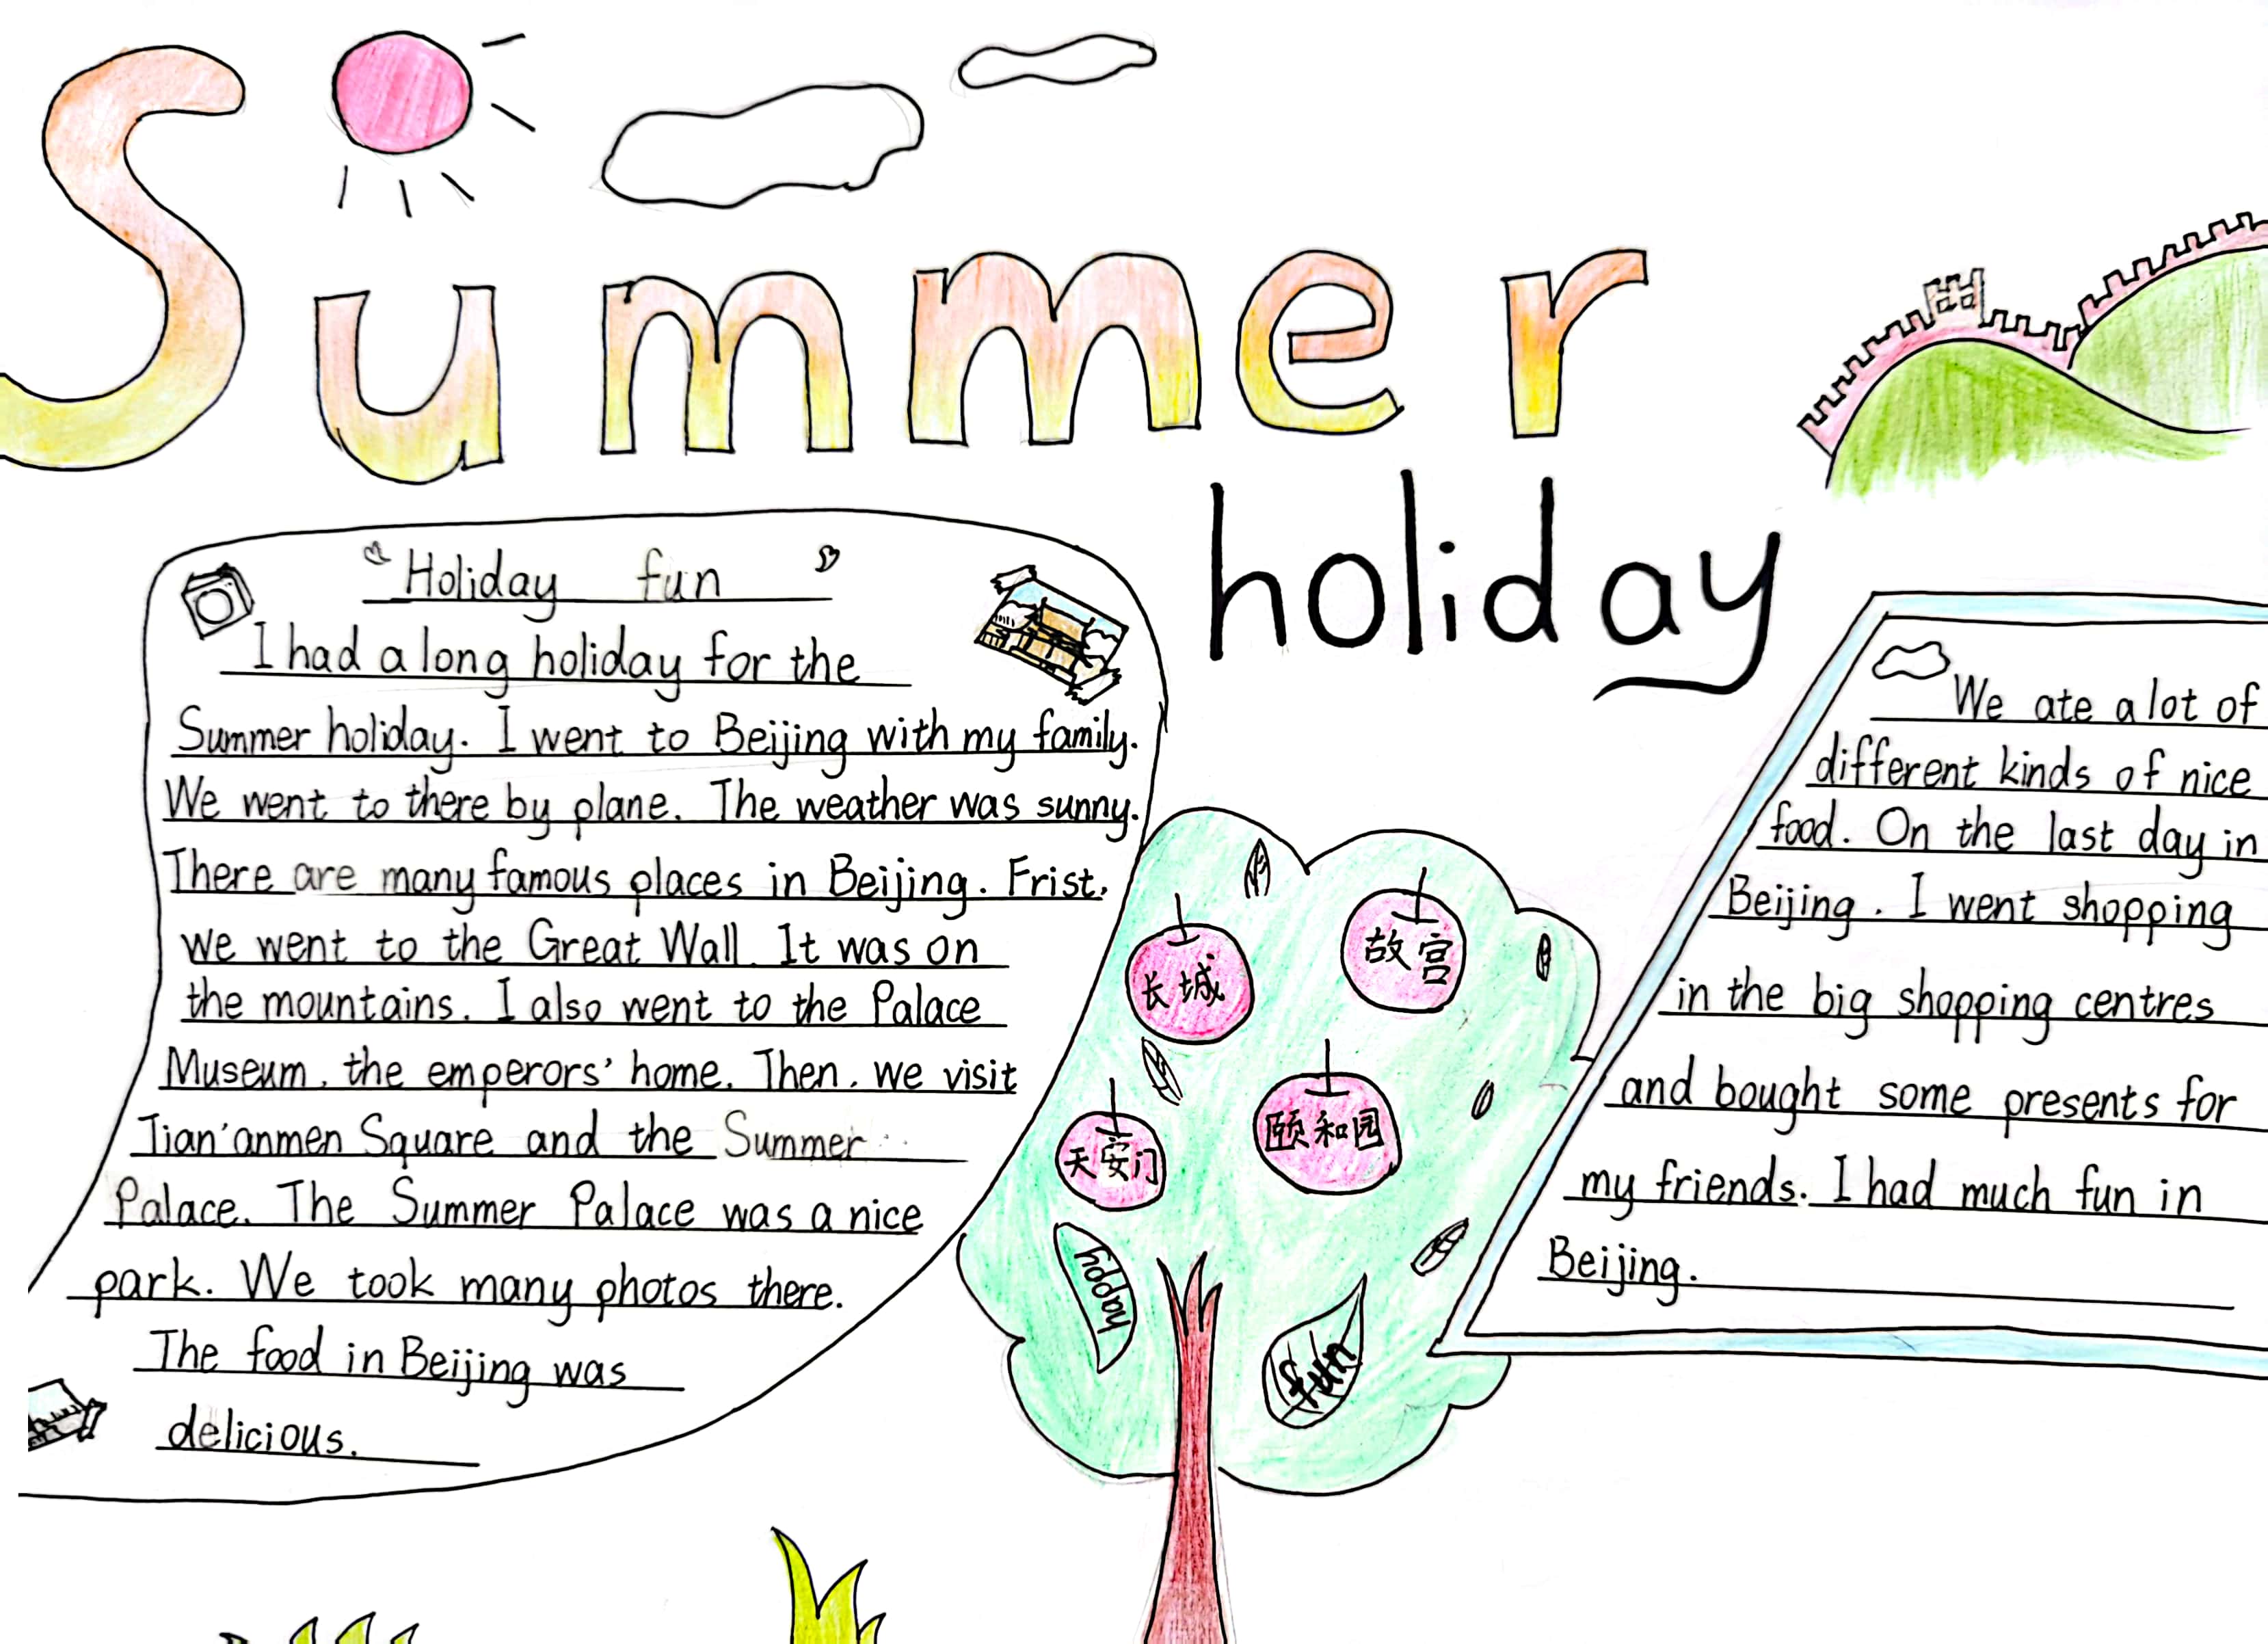 Summer
holiday
Holiday fun
I had a long holiday for the
Summer holiday. I went to Beijing with my family.
We went to there by plane. The weather was sunny.
There are many famous places in Beijing. Frist,
we went to the Great Wall. It was on
the mountains. I also went to the Palace
Museum, the emperors' home. Then, we visit
Tian'anmen Square and the Summer
Palace. The Summer Palace was a nice
park. We took many photos there.
The food in Beijing was
delicious.
长城
故宫
天安门
颐和园
happy
fun
We ate a lot of
different kinds of nice
food. On the last day in
Beijing. I went shopping
in the big shopping centres
and bought some presents for
my friends. I had much fun in
Beijing.